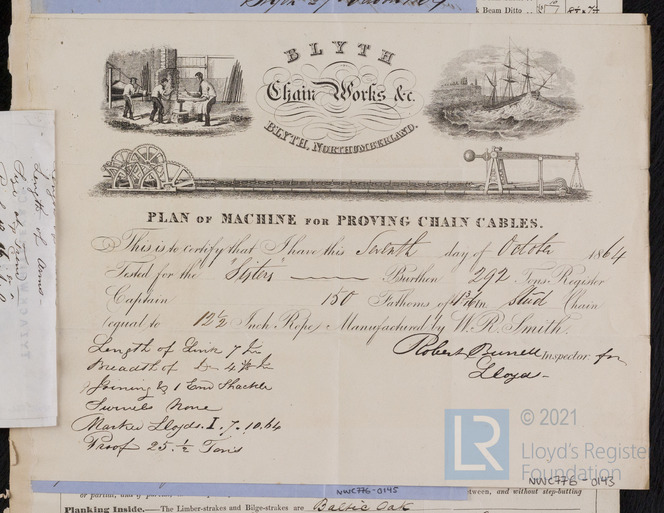 Beam Ditto
BLYTH
Chain Works &c.
BLYTH, NORTHUMBERLAND.
PLAN OF MACHINE FOR PROVING CHAIN CABLES.
This is to certify that I have this Seventh day of October 1864
Tested for the "Sisters" Burthen 292 Tons Register
Captain 150 Fathoms of Stud Chain
equal to 12½ Inch Rope, Manufactured by W. R. Smith.
Length of Link 7 In
Robert Bunell Inspector for
Breadth of Do 4
Lloyd
Joining & 1 End Shackle
Swivels None
Marked Lloyds. I. 7. 10. 64
Proof 25.½ Tons
length of
LR © 2021
Lloyd's Register
Foundation
NWC776-0143
NWC776-0145
etween, and without step-butting
Planking Inside.— The Limber-strakes and Bilge-strakes are Baltic Oak